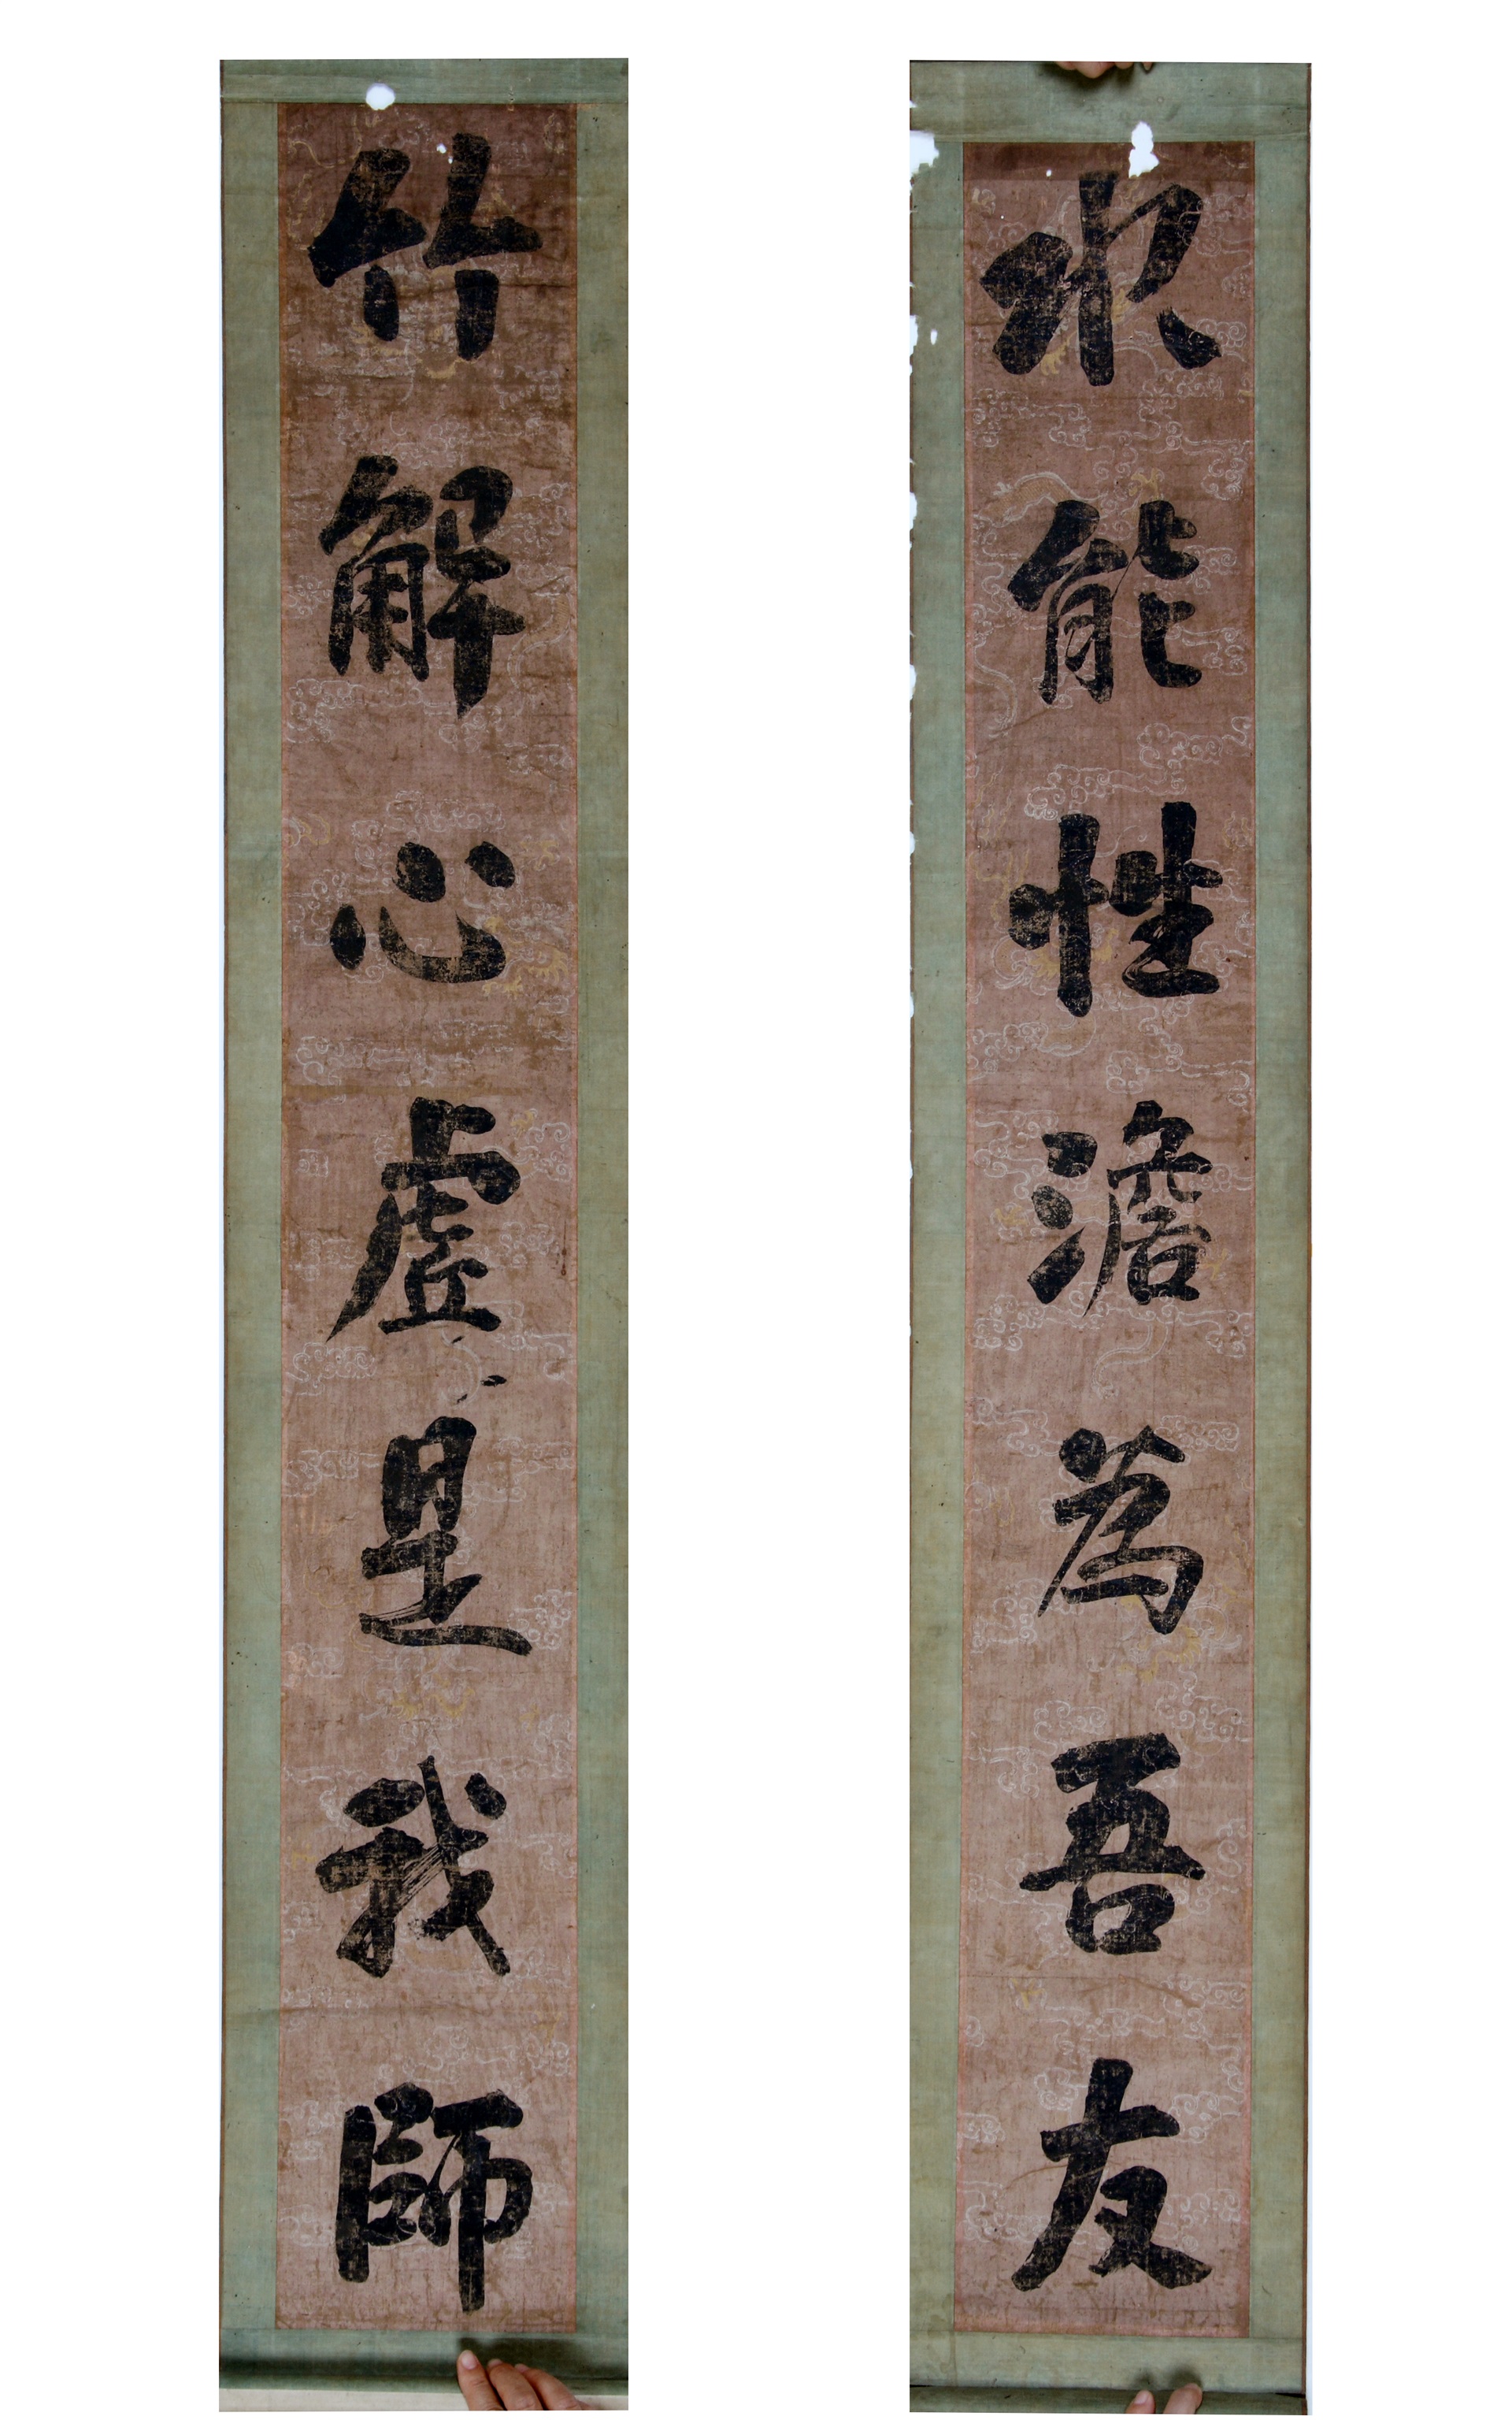 水能性澹為吾友
竹解心虛是我師